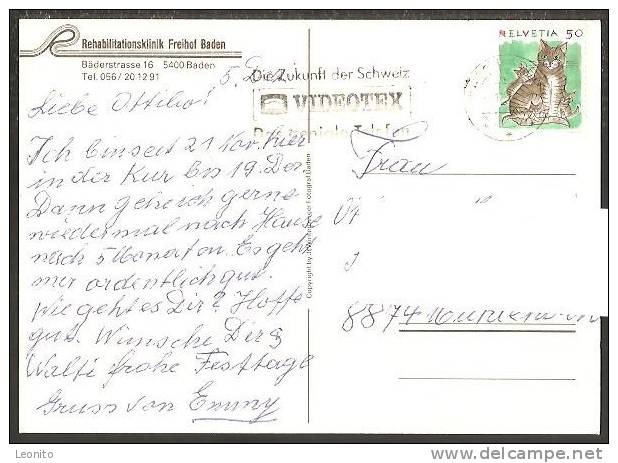 Rehabilitationsklinik Freihof Baden
Bäderstrasse 16 5400 Baden
Tel. 056/20 12 91
HELVETIA 50
5. Dez.
Die Zukunft der Schweiz
VIDEOTEX
Das geniale Telefon
Liebe
Ich bin seit 21 Nov. hier
in der Kur bis 19. Dez.
Dann gehe ich gerne
wiedermal nach Hause
nach 5 Monaten. Es geht
mir ordentlich gut.
Wie geht es Dir? Hoffe
gut. Wünsche Dir &
Walti frohe Festtage
Gruss von Emmy
Frau
8874
Copyright by
Fotograf Baden
Leonito
www.delcampe.net